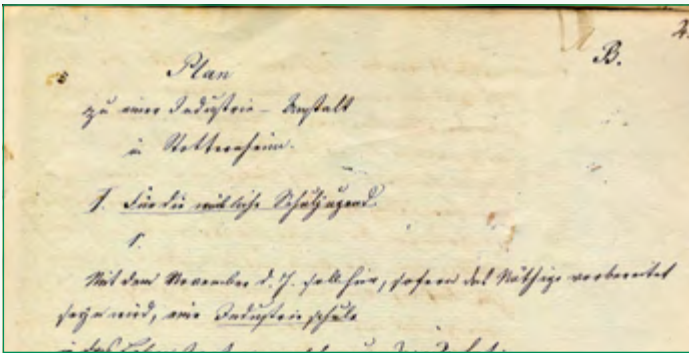 2.
B.
Plan
zu einer Industrie-Anstalt
in Stotternheim.
I. Für die weibliche Schuljugend.
1.
Mit dem November d. J. soll hier, sofern das Nöthige vorbereitet
seyn wird, eine Industrieschule